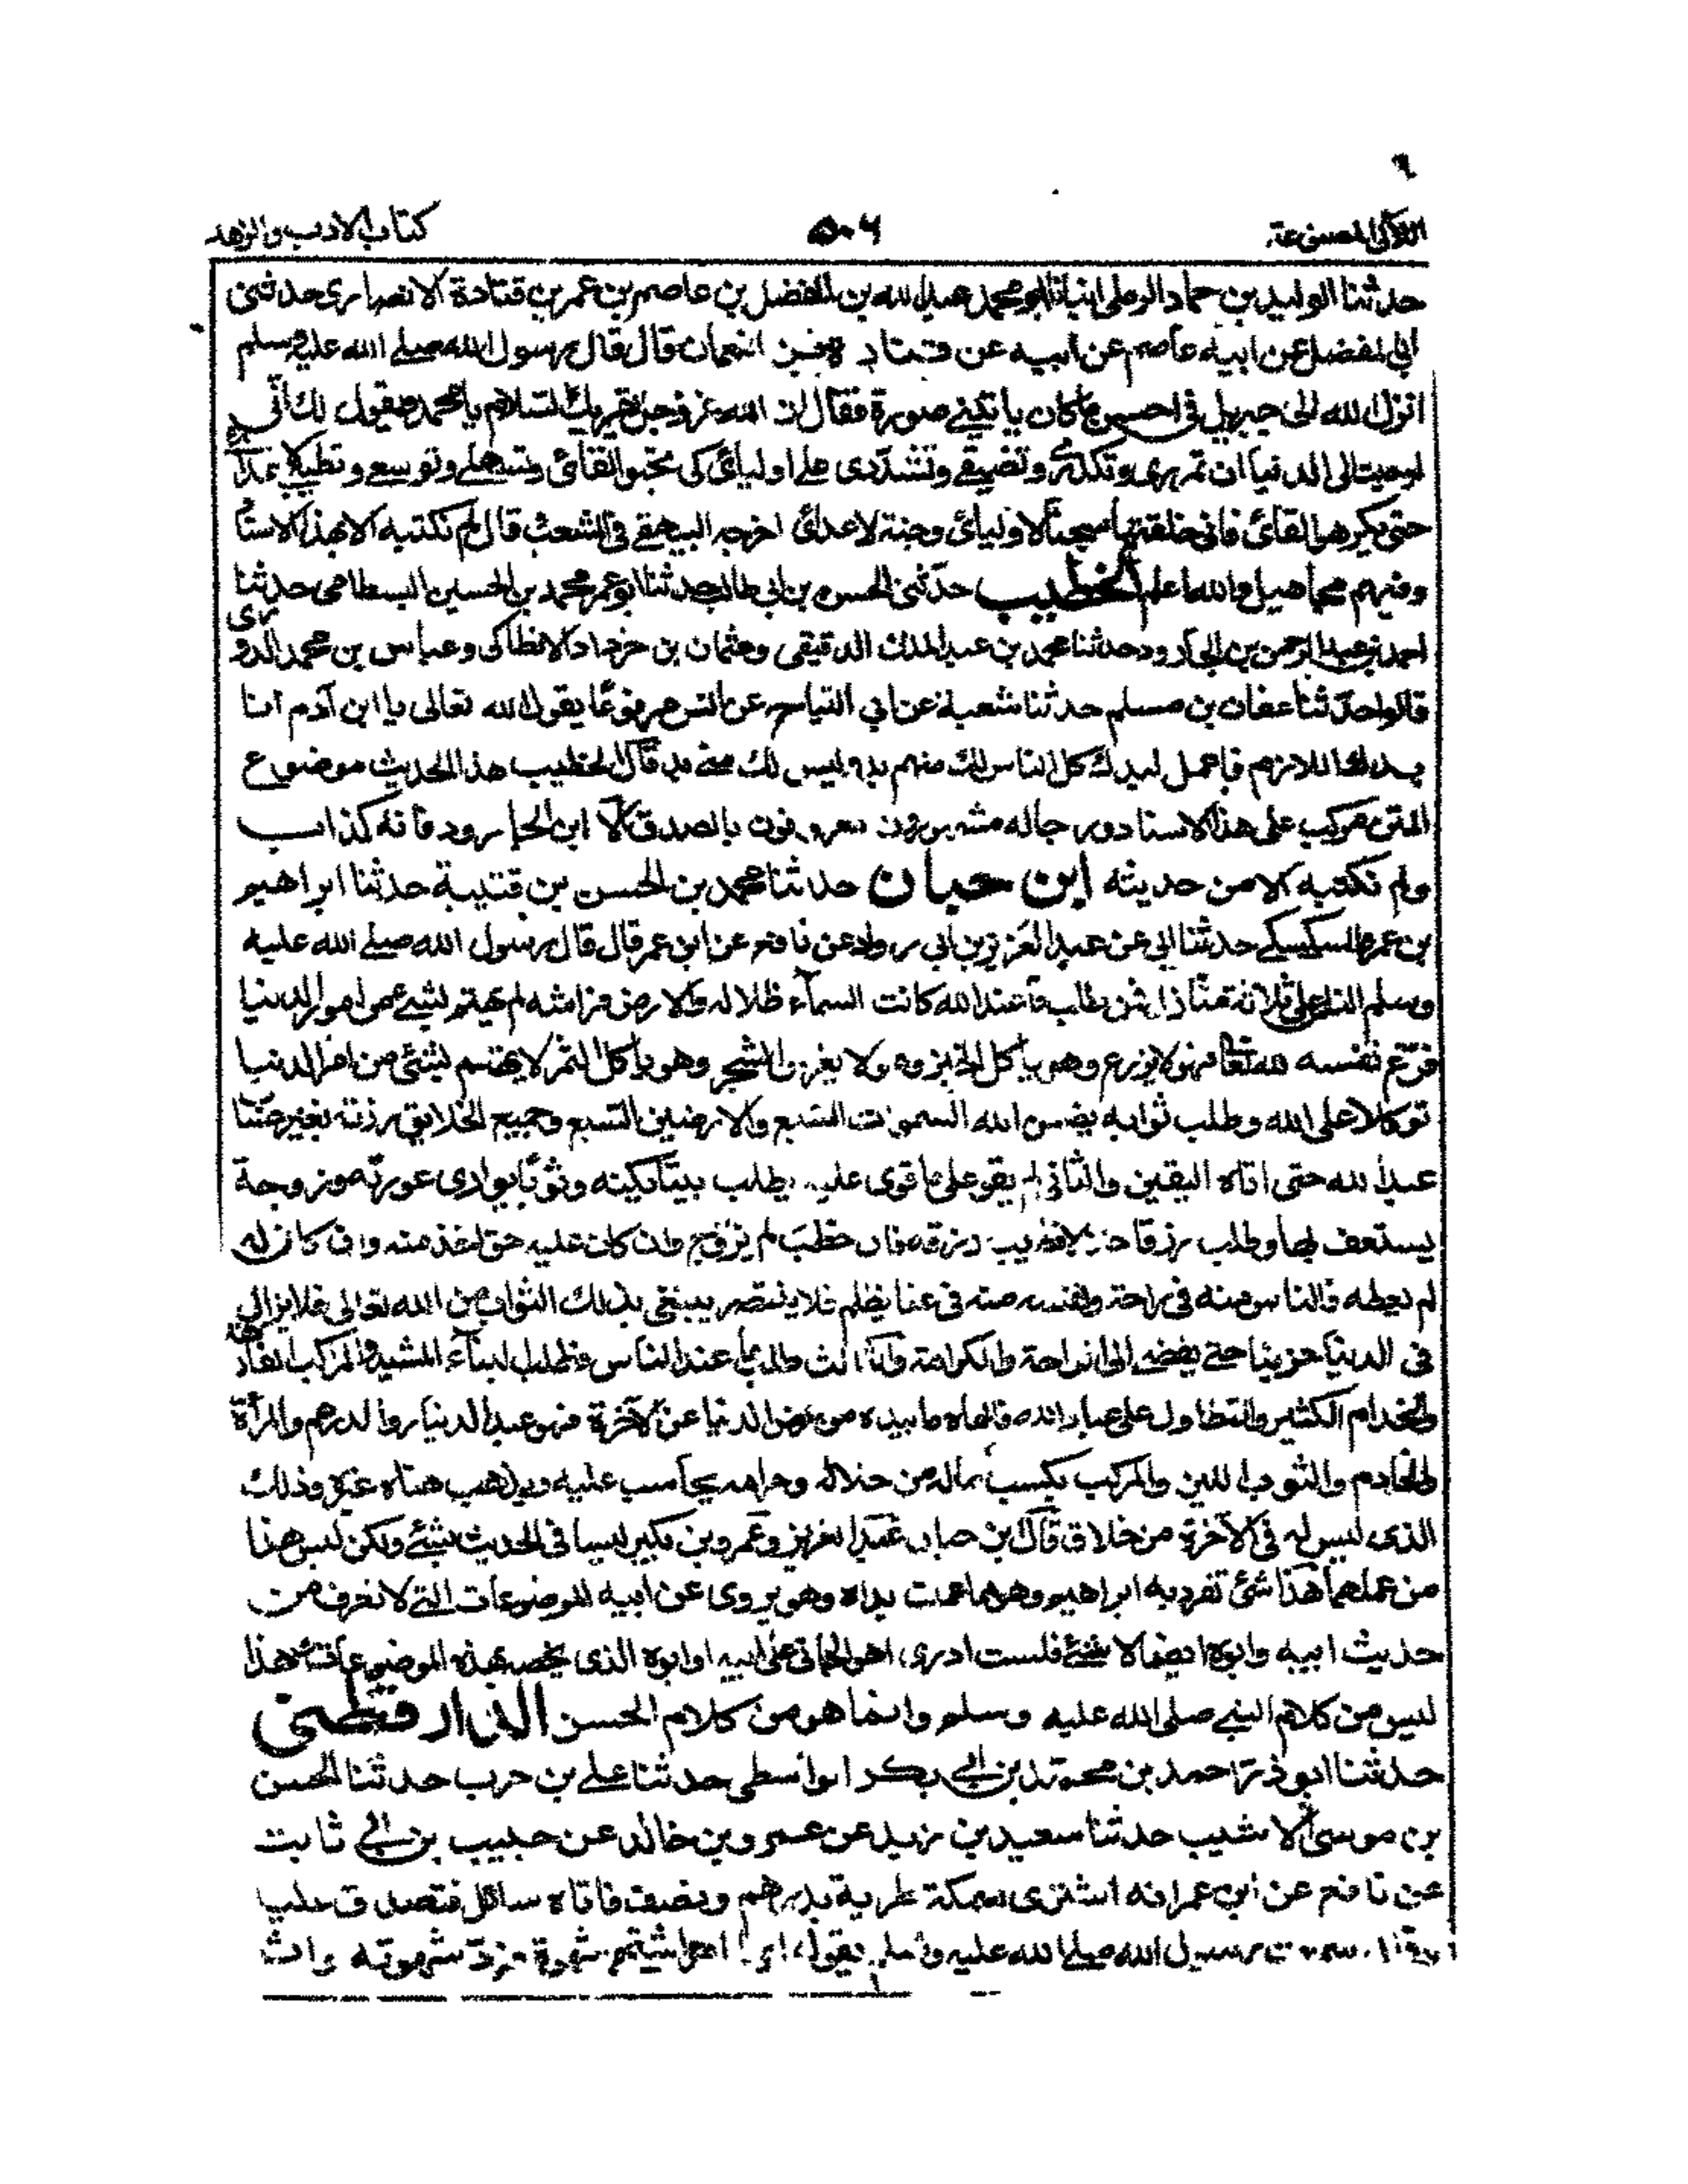 اللآلى المصنوعة
٥٠٦
كتاب الادب والزهد
حدثنا الوليد بن حماد الرملى انبانا ابو محمد عبد الله بن المفضل بن عاصم بن عمر بن قتادة الانصارى حدثنى
ابى المفضل عن ابيه عاصم عن ابيه عن قتادة بن النعمان قال قال رسول الله صلى الله عليه وسلم
انزل الله الى جبريل فى احسن ما كان ياتينى صورة فقال ان الله عز وجل يقريك السلام يا محمد ويقول لك انى
اوحيت الى الدنيا ان تمررى وتكدرى وتضيقى وتشددى على اوليائى كى يحبوا لقائى وتسهلى وتوسعى وتطيبى لاعدائى
حتى يكرهوا لقائى فانى خلقتها سجنا لاوليائى وجنة لاعدائى اخرجه البيهقى فى الشعب قال لم نكتبه الا بهذا الاسناد
وفيهم مجاهيل والله اعلم الخطيب حدثنى الحسن بن ابى طالب حدثنا ابو عمر محمد بن الحسين البسطامى حدثنا
احمد بن عبد الرحمن بن الجارود حدثنا محمد بن عبد الملك الدقيقى وعثمان بن خرزاد الانطاكى وعباس بن محمد الدورى
قالوا حدثنا عفان بن مسلم حدثنا شعبة عن ابي التياح عن انس مرفوعا يقول الله تعالى يا ابن آدم انا
بدك اللازم فاعمل لبدك كل الناس لك منهم بد وليس لك منى بد قال الخطيب هذا الحديث موضوع
المتن مركب على هذا الاسناد ورجاله مشهورون معروفون بالصدق الا ابن الجارود فانه كذاب
ولم نكتبه الا من حديثه ابن حبان حدثنا محمد بن الحسن بن قتيبة حدثنا ابراهيم
بن عمرو السكسكى حدثنا ابي عن عبد العزيز بن ابي رواد عن نافع عن ابن عمر قال قال رسول الله صلى الله عليه
وسلم الناس على ثلاثة منازل فمن طلب ما عند الله كانت السماء ظلاله والارض فراشه لم يهتم بشئ من امور الدنيا
فرغ نفسه لله تعالى فهو لا يزرع وهو ياكل الخبز وهو لا يغرس الشجر وهو ياكل الثمر لا يهتم بشئ من امر الدنيا
توكلا على الله وطلب ثوابه يضمن الله السموات السبع والارضين السبع وجميع الخلايق رزقه بغير حساب
عبد الله حتى اتاه اليقين والثانى لم يقو على ما قوى عليه يطلب بيتا يكنه وثوبا يوارى عورته وزوجة
يستعف بها وطلب رزقا حلالا فطيب رزقه فان خطب لم يزوج وان كان عليه حق اخذ منه وان كان له
لم يعطه فالناس منه فى راحة ونفسه منه فى عنا يظلم فلا ينتصر يبتغى بذلك الثواب من الله تعالى فلا يزال
فى الدنيا حزينا حتى يفضى الى الراحة والكرامة والثالث طلب ما عند الناس وطلب البناء المشيد والمركب الفاره
والخدام الكثير والتطاول على عباد الله فالهاه ما بيده من عرض الدنيا عن الآخرة فهو عبد الدينار والدرهم والمرأة
والخادم والثوب اللين والمركب يكسب ماله من حلاله وحرامه يحاسب عليه ويذهب هناه غيره وذلك
الذى ليس له فى الآخرة من خلاق قال ابن حبان عبد العزيز وعمرو بن بكير ليسا فى الحديث بشئ ولكن ليس هذا
من عملهما هذا شئ تفرد به ابراهيم وهو مما عملت يداه وهو يروى عن ابيه الموضوعات التى لا تعرف من
حديث ابيه وابوه ايضا لا شئ فلست ادرى اهو الجانى على ابيه او ابوه الذى يخصه بهذه الموضوعات هذا
ليس من كلام النبى صلى الله عليه وسلم وانما هو من كلام الحسن الدارقطنى
حدثنا ابو ذر احمد بن محمد بن ابى بكر الواسطى حدثنا على بن حرب حدثنا الحسن
بن موسى الاشيب حدثنا سعيد بن زيد عن عمرو بن خالد عن حبيب بن ابى ثابت
عن نافع عن ابن عمر انه اشترى سمكة طرية بدرهم ونصف فاتاه سائل فتصدق عليه
سمعت رسول الله صلى الله عليه وسلم يقول ايما امرا اشتهى شهوة فرد شهوته واثر